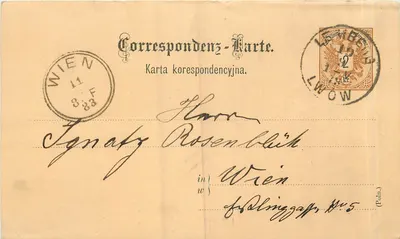 Correspondenz-Karte.
Karta korespondencyjna.
LEMBERG
LWÓW
WIEN
11
8 F
83
Herrn
Ignatz Rosenblük
in
w
Wien
Eßlinggasse No 5
(Poln.)